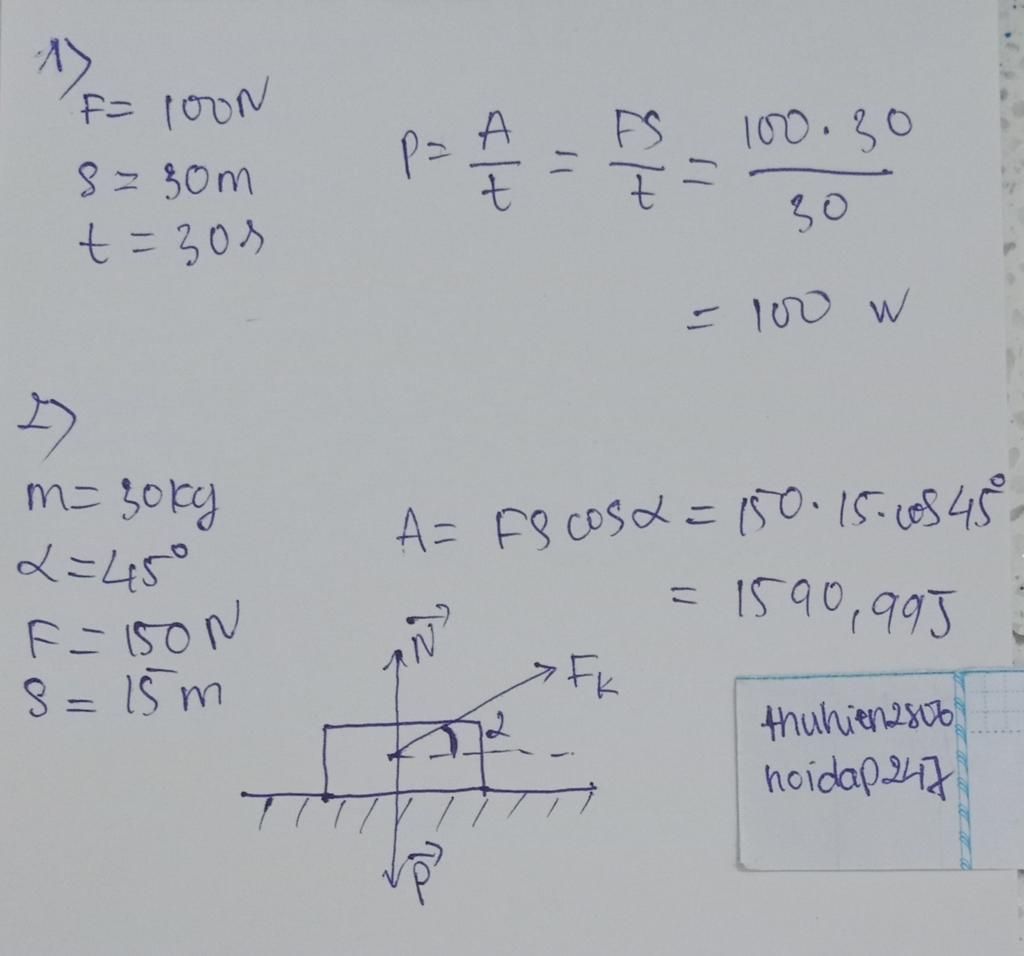 1)
F = 100N
S = 30m
t = 30s
P = A/t = FS/t = 100.30/30
= 100 W
2)
m = 30kg
α = 45°
F = 150N
S = 15m
A = FS cosα = 150.15.cos45°
= 1590,99J
N
F_K
α
P
thuhien2806
hoidap247